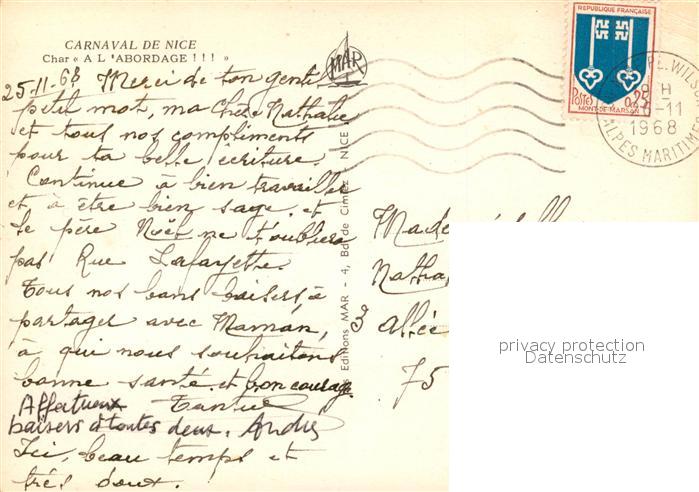 CARNAVAL DE NICE
Char « A L'ABORDAGE ! ! ! »
25-11-68 Merci de ton gentil
petit mot, ma Chère Nathalie
et tous nos compliments
pour ta belle écriture.
Continue à bien travailler
et à être bien sage et
le père Noël ne t'oubliera
pas Rue Lafayette.
Tous nos bons baisers à
partager avec Maman,
à qui nous souhaitons
bonne santé et bon courage
Tantie
Affectueux
baisers à toutes deux. André
Ici, beau temps et
très doux.
MAR
Editions MAR - 4, Bd de Cimiez NICE
REPUBLIQUE FRANÇAISE
POSTES 0,25
MONT-DE-MARSAN
PL. WILSON
H
-11
1968
ALPES MARITIMES
Natha
3 allée
75
privacy protection
Datenschutz